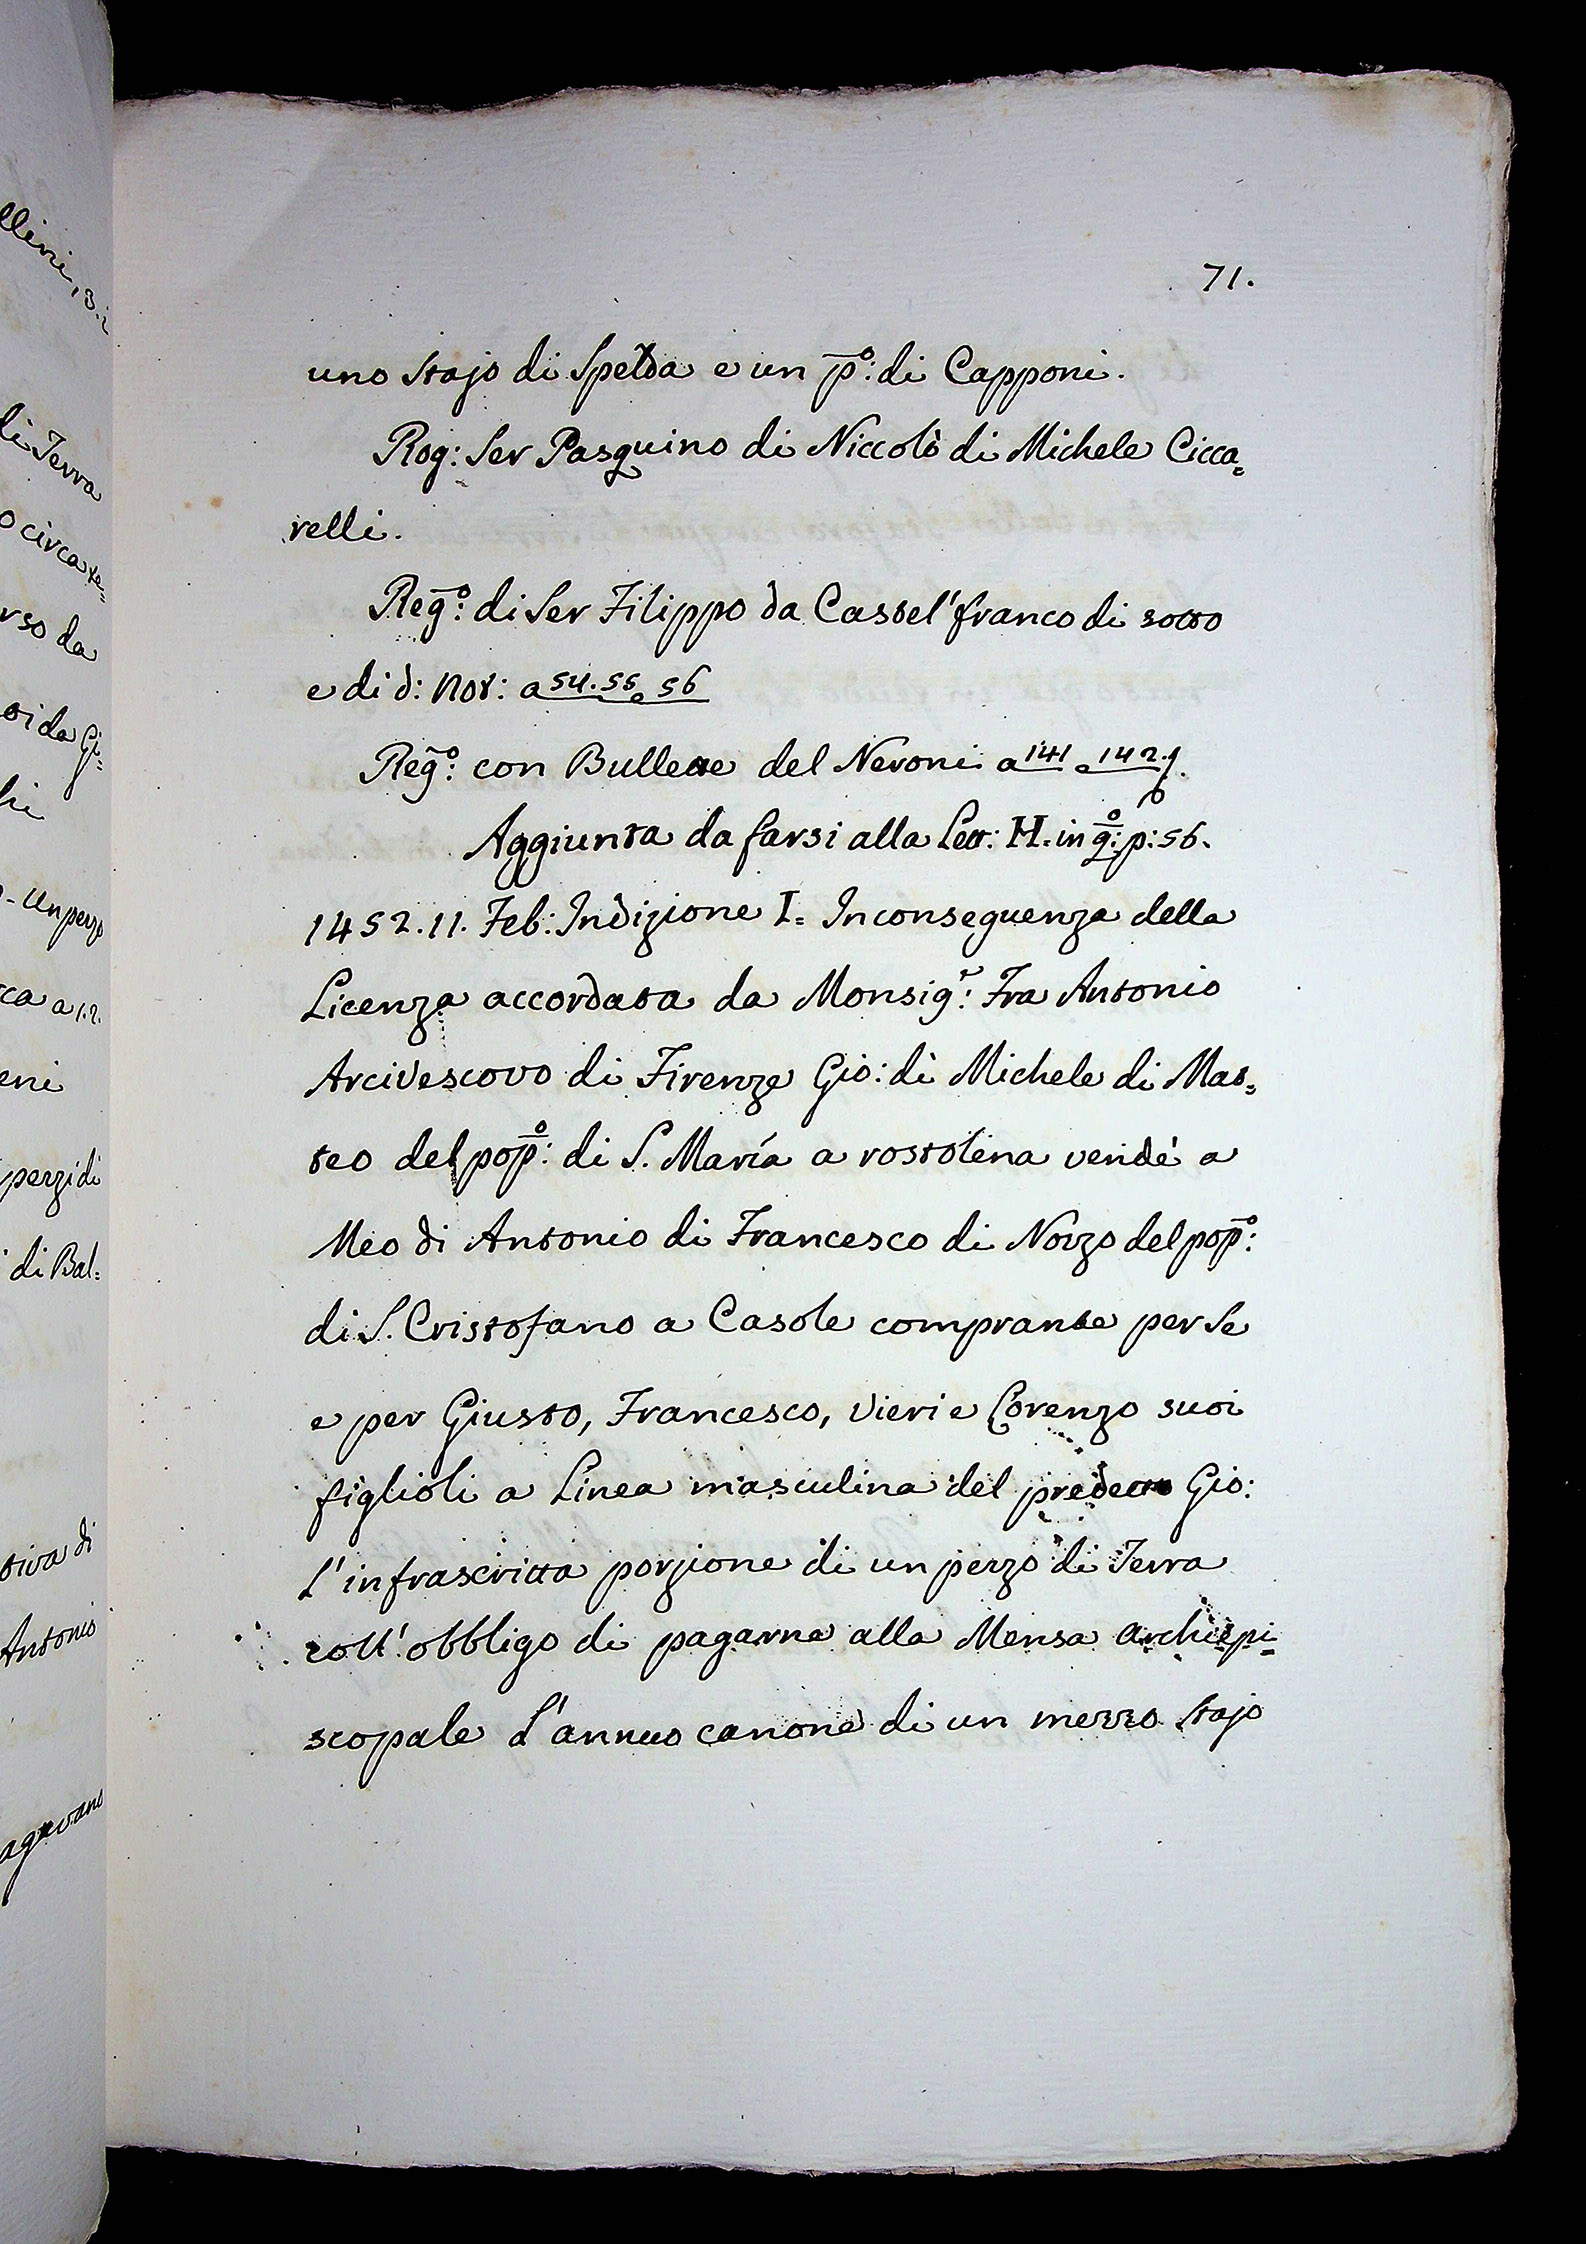 71.
uno Stajo di Spelda e un p̄º: di Capponi.
Rog: Ser Pasquino di Niccolò di Michele Cicca=
relli.
Reḡº: di Ser Filippo da Castel'franco di sotto
e di d: Not: a 54. 55 e 56
Reḡº: con Bullette del Neroni a 141 e 142.
Aggiunta da farsi alla Lett: H. in q̄º: p: 56.
1452. 11. Feb: Indizione I= Inconseguenza della
Licenza accordata da Monsigʳ: Fra Antonio
Arcivescovo di Firenze Gio: di Michele di Mat=
teo del pop̄º: di S. María a rostolena vendè a
Meo di Antonio di Francesco di Nozzo del pop̄º:
di S. Cristofano a Casole comprante per Se
e per Giusto, Francesco, Vieri e Lorenzo suoi
figlioli a Linea masculina del predetto Gio:
l'infrascritta porzione di un pezzo di Terra
coll'obbligo di pagarne alla Mensa archiepi=
scopale l'annuo canone di un mezzo Stajo
llini, 3.2
di Terra
o circa te=
rso da
ti da Gi=
hi
- un pezzo
ca a 1.2.
eni
pezzi di
di Bal=
tiva di
Antonio
agavano